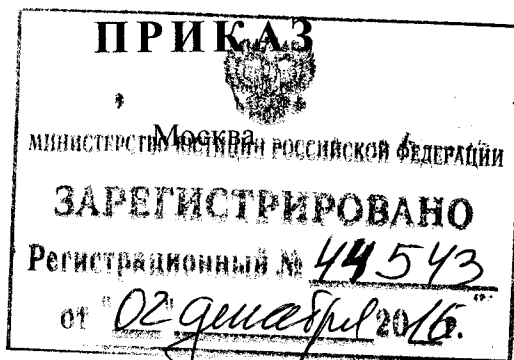 ПРИКАЗ
Москва
МИНИСТЕРСТВО ЮСТИЦИИ РОССИЙСКОЙ ФЕДЕРАЦИИ
ЗАРЕГИСТРИРОВАНО
Регистрационный № 44543
от "02" декабря 2016.